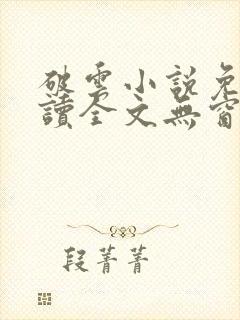 破雲小說免
讀全文無窗
段菁菁